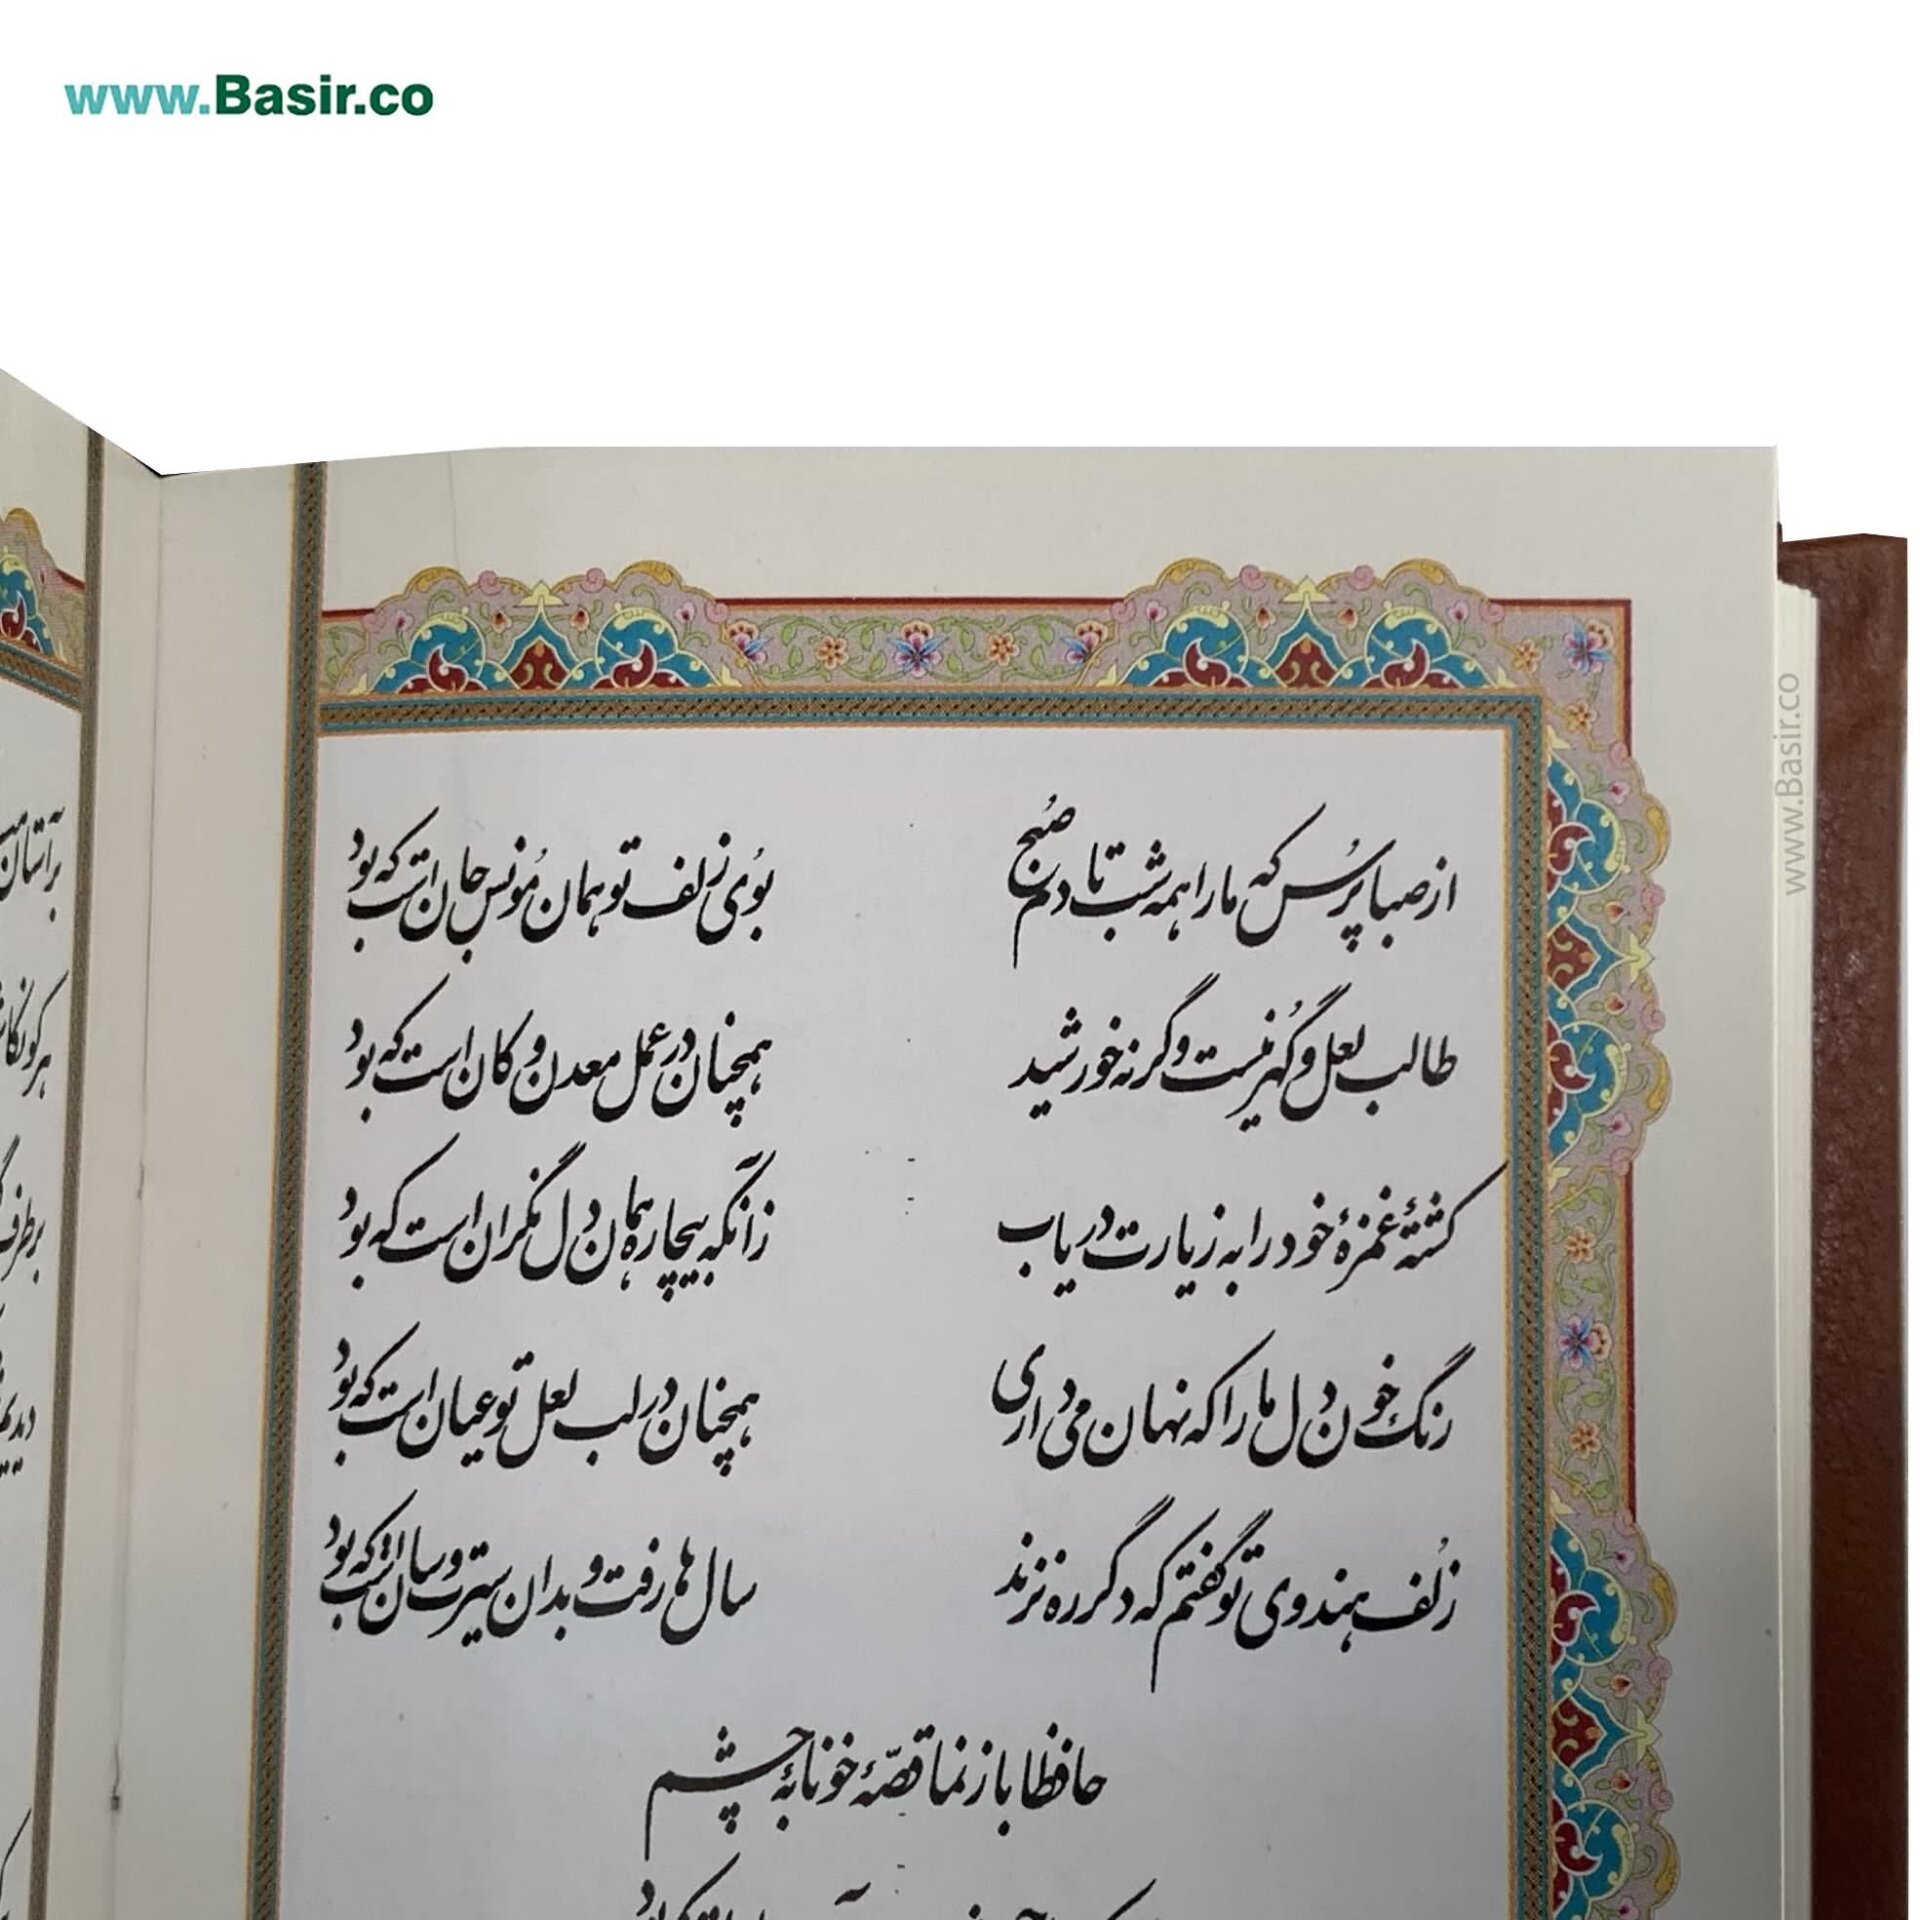 www.Basir.co
از صبا پُرس که ما را همه شب تا دم صُبح
بوُی زلف تو همان مُونس جان است که بود
طالب لعل و گُهر نیست وگرنه خورشید
همچنان در عمل معدن و کان است که بود
کشتهٔ غمزهٔ خود را به زیارت دریاب
زانکه بیچاره همان دل نگران است که بود
رنگ خون دل ما را که نهان می داری
همچنان در لب لعل تو عیان است که بود
زُلف هندوی تو گفتم که دگر ره نزند
سال ها رفت و بدان سیرت و سان است که بود
حافظا باز نما قصّهٔ خونابهٔ چشم
www.Basir.co